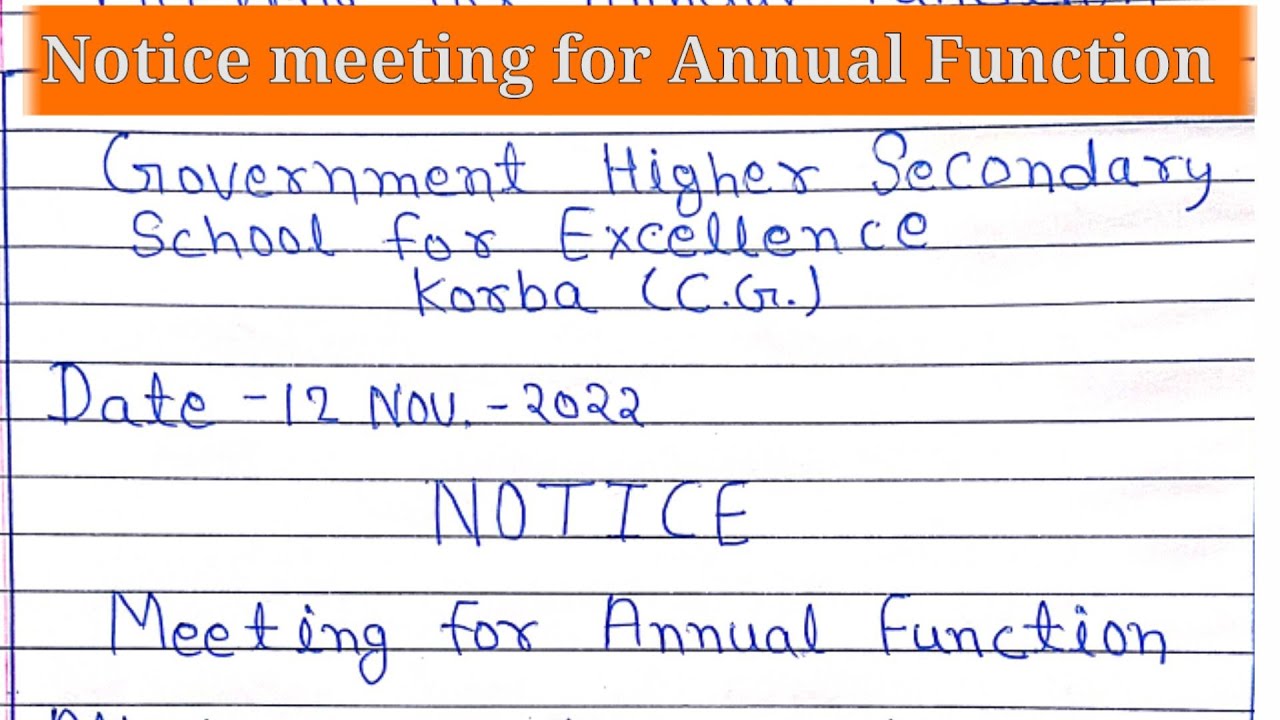 Notice meeting for Annual Function
Government Higher Secondary
School for Excellence
Korba (C.G.)
Date - 12 Nov. - 2022
NOTICE
Meeting for Annual Function